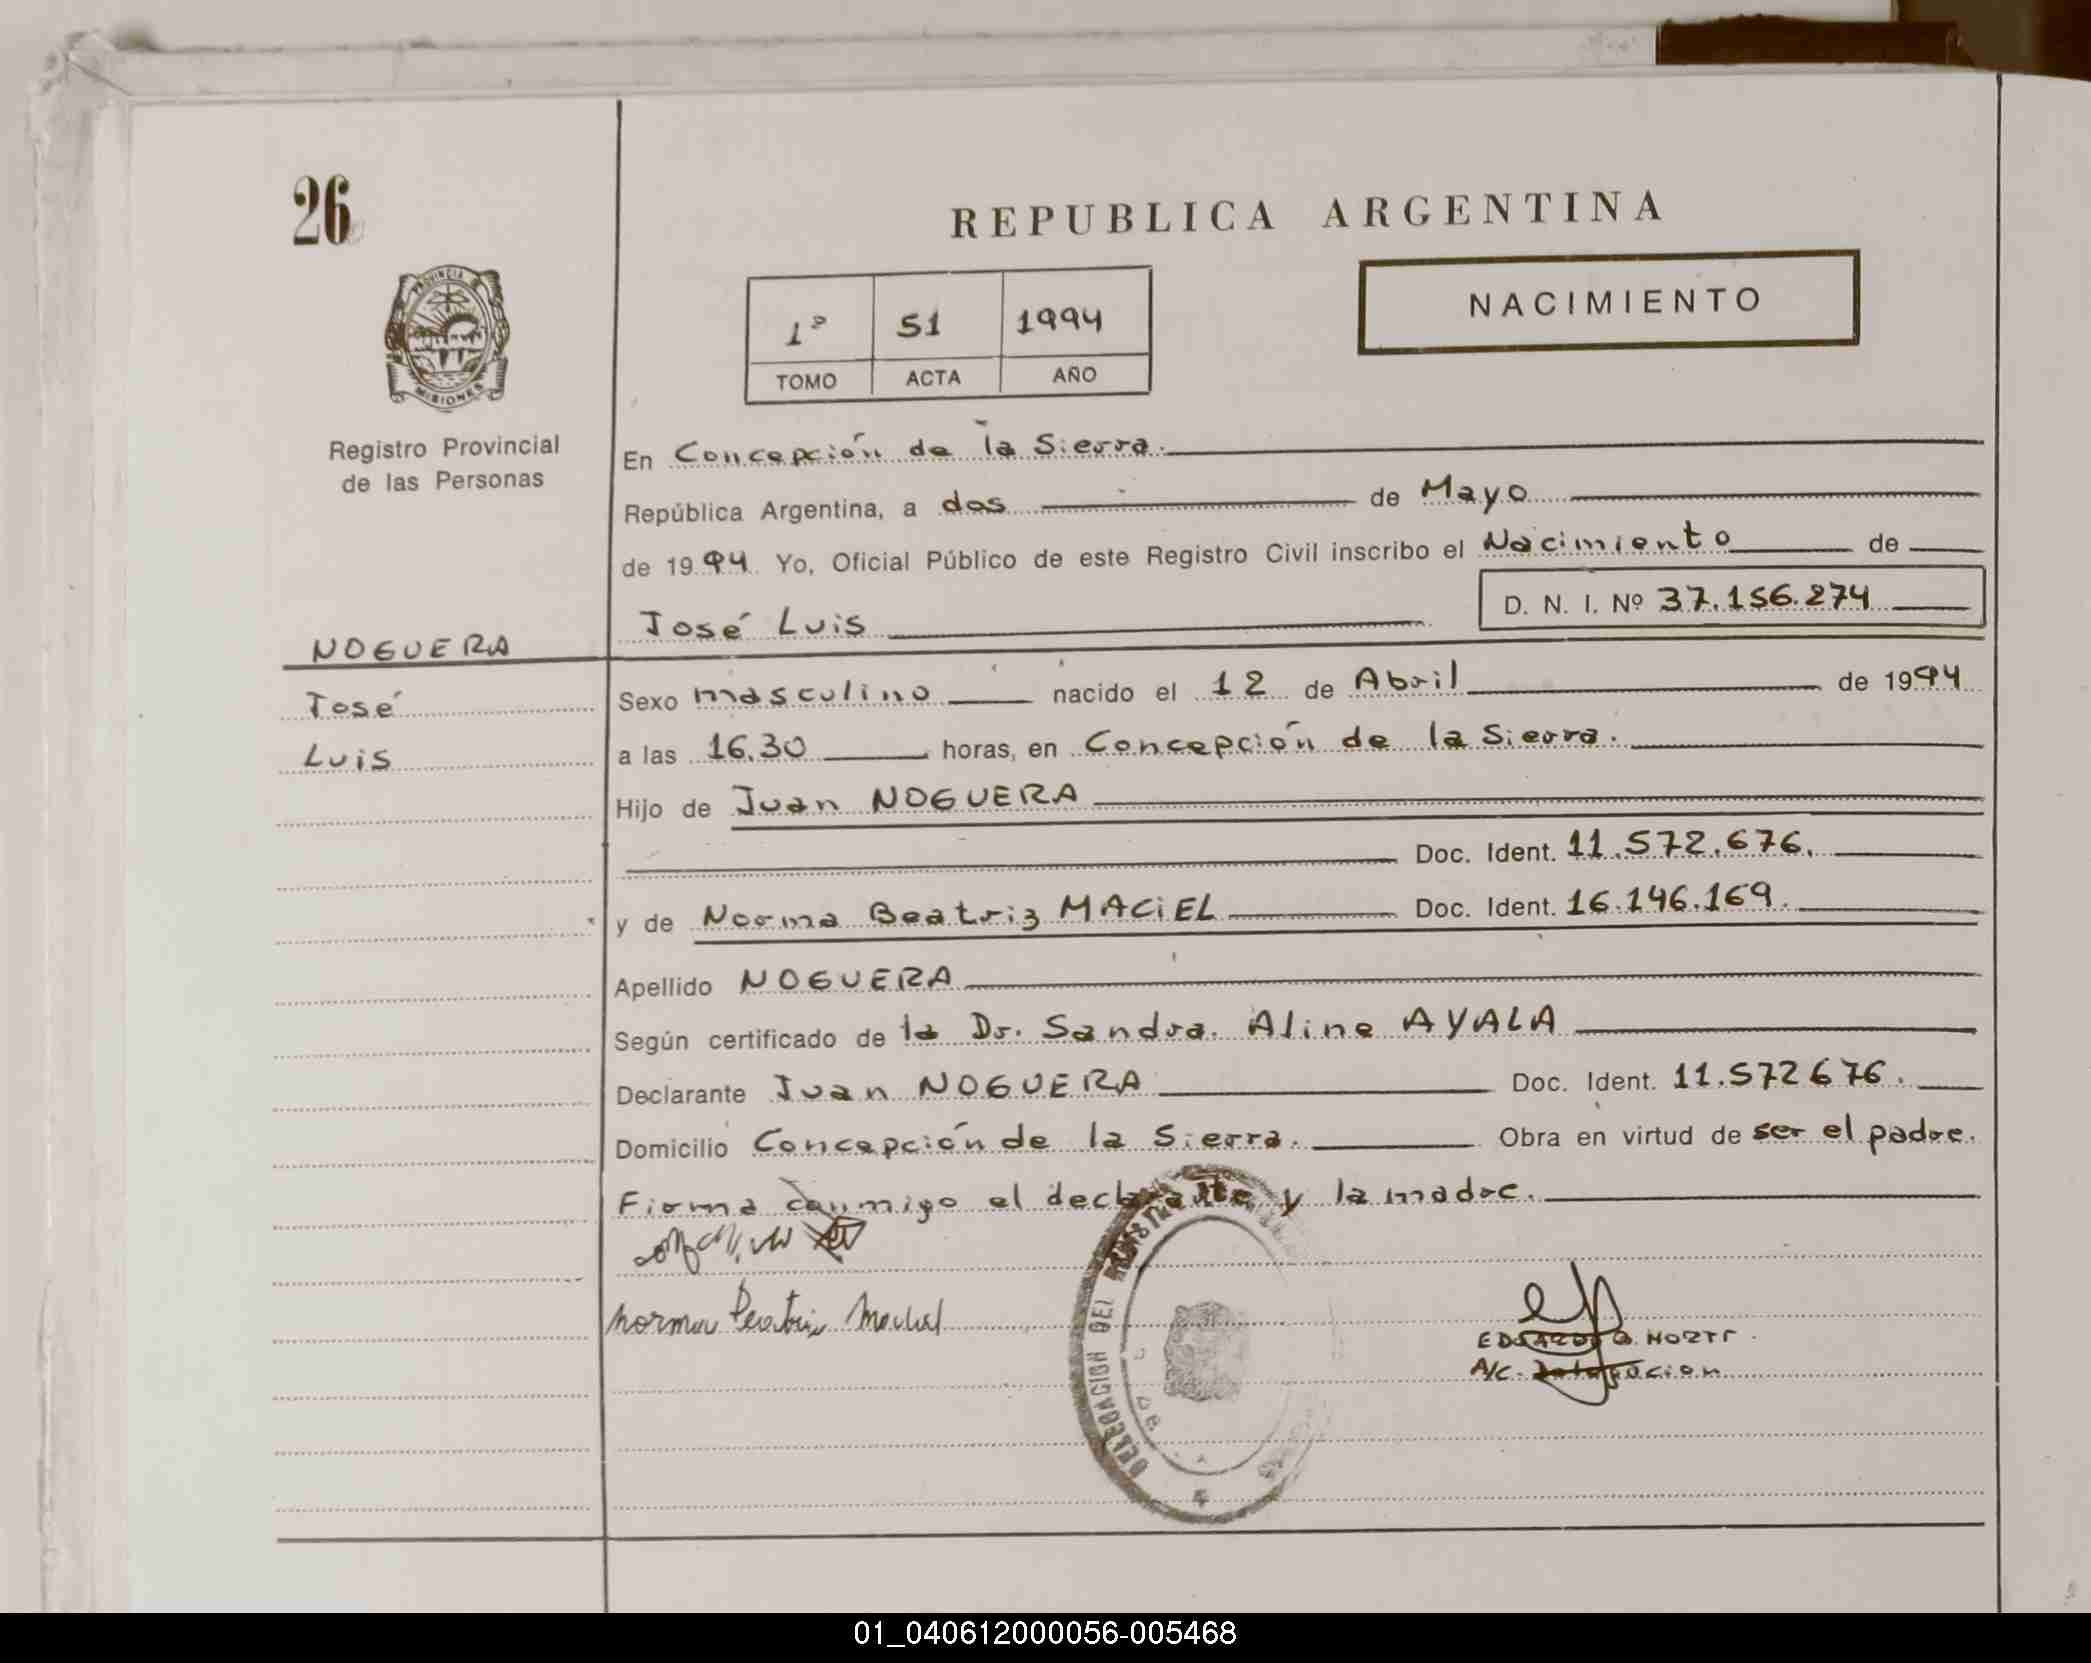 26
REPUBLICA ARGENTINA
PROVINCIA
MISIONES
Registro Provincial
de las Personas
1º 51 1994
TOMO ACTA AÑO
NACIMIENTO
En Concepción de la Sierra.
República Argentina, a dos de Mayo
de 1994 Yo, Oficial Público de este Registro Civil inscribo el Nacimiento de
José Luis
D. N. I. Nº 37.156.274
NOGUERA
José
Luis
Sexo masculino nacido el 12 de Abril de 1994
a las 16.30 horas, en Concepción de la Sierra.
Hijo de Juan NOGUERA
Doc. Ident. 11.572.676.
y de Norma Beatriz MACiEL Doc. Ident. 16.146.169.
Apellido NOGUERA
Según certificado de la Dr. Sandra. Aline AYALA
Declarante Juan NOGUERA Doc. Ident. 11.572676.
Domicilio Concepción de la Sierra. Obra en virtud de ser el padre.
Firma conmigo el declarante y la madre.
Norma Beatriz Maciel
DELEGACION DEL
EDUARDO
A/C.
01_040612000056-005468